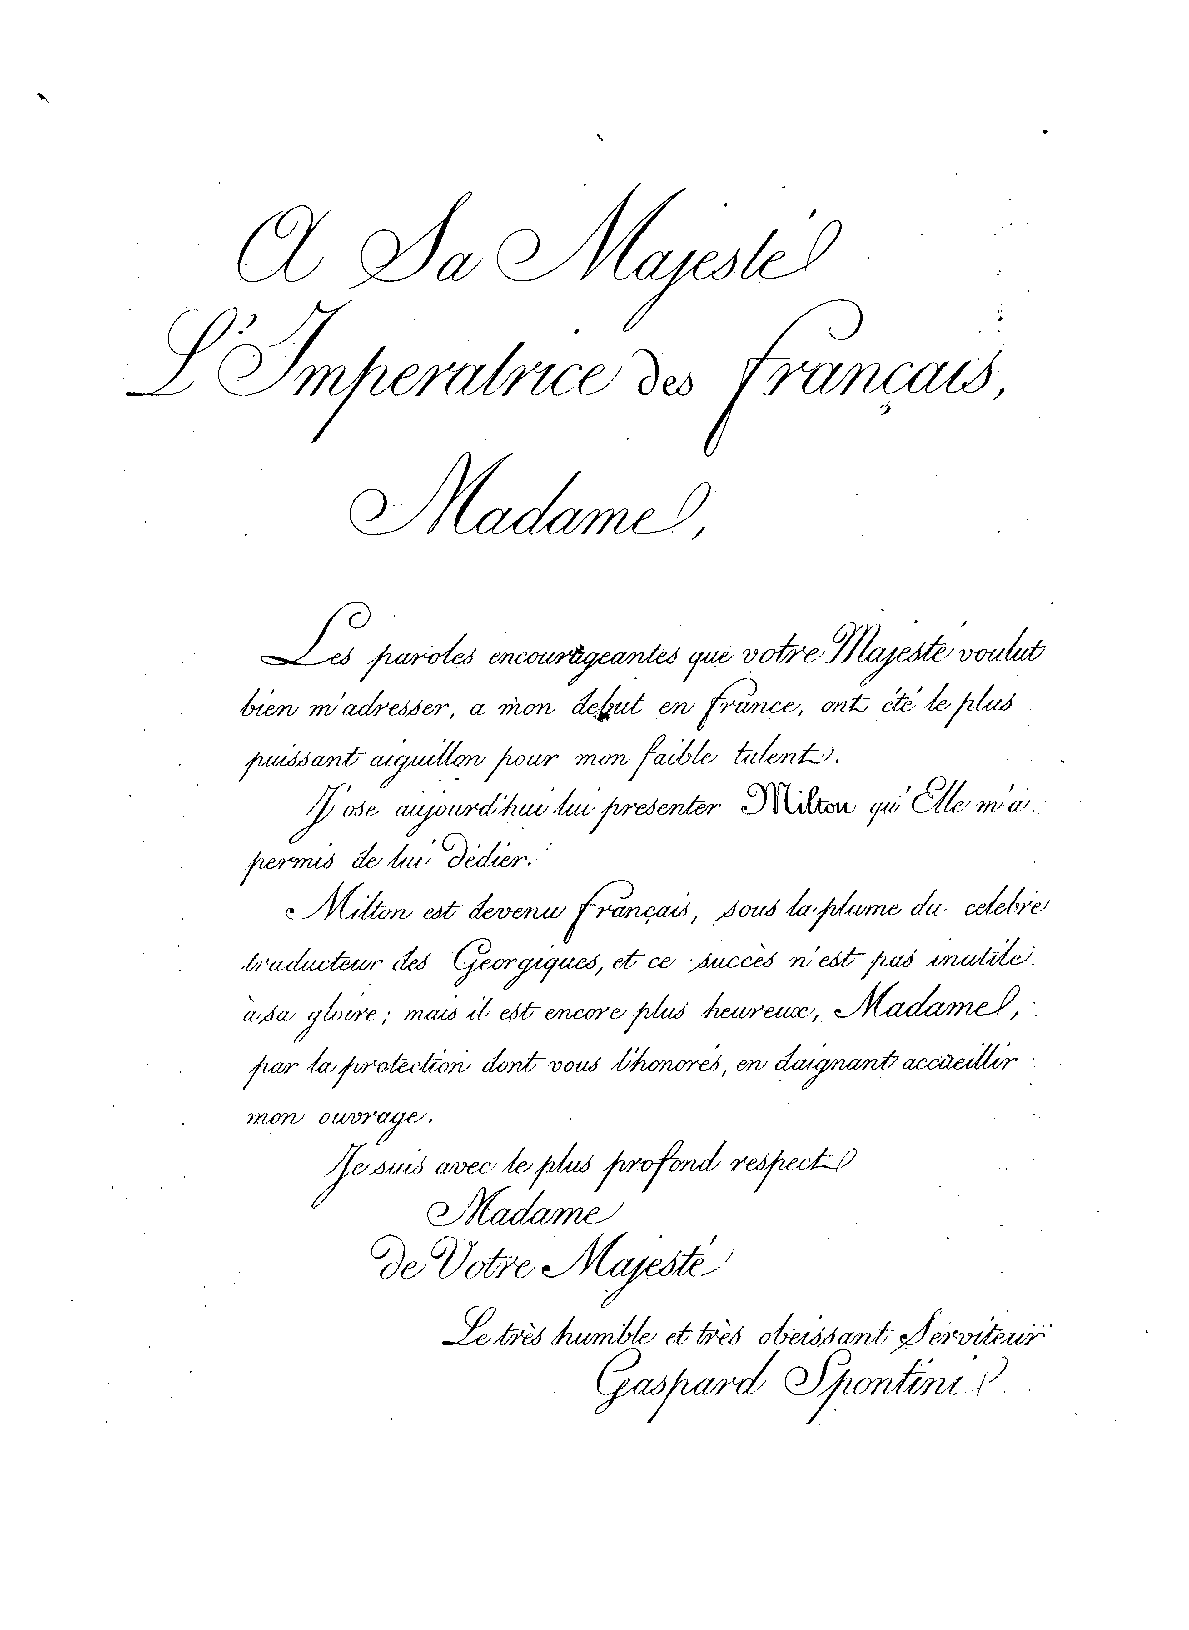 A Sa Majesté
L'Imperatrice des français,
Madame,
Les paroles encourageantes que votre Majesté voulut
bien m'adresser, a mon debut en france, ont été le plus
puissant aiguillon pour mon faible talent.
J'ose aujourd'hui lui presenter Milton qu'Elle m'a
permis de lui dédier.
Milton est devenu français, sous la plume du celebre
traducteur des Georgiques, et ce succès n'est pas inutile
à sa gloire; mais il est encore plus heureux, Madame,
par la protection dont vous l'honorés, en daignant accueillir
mon ouvrage.
Je suis avec le plus profond respect
Madame
de Votre Majesté
Le très humble et très obeissant Serviteur
Gaspard Spontini